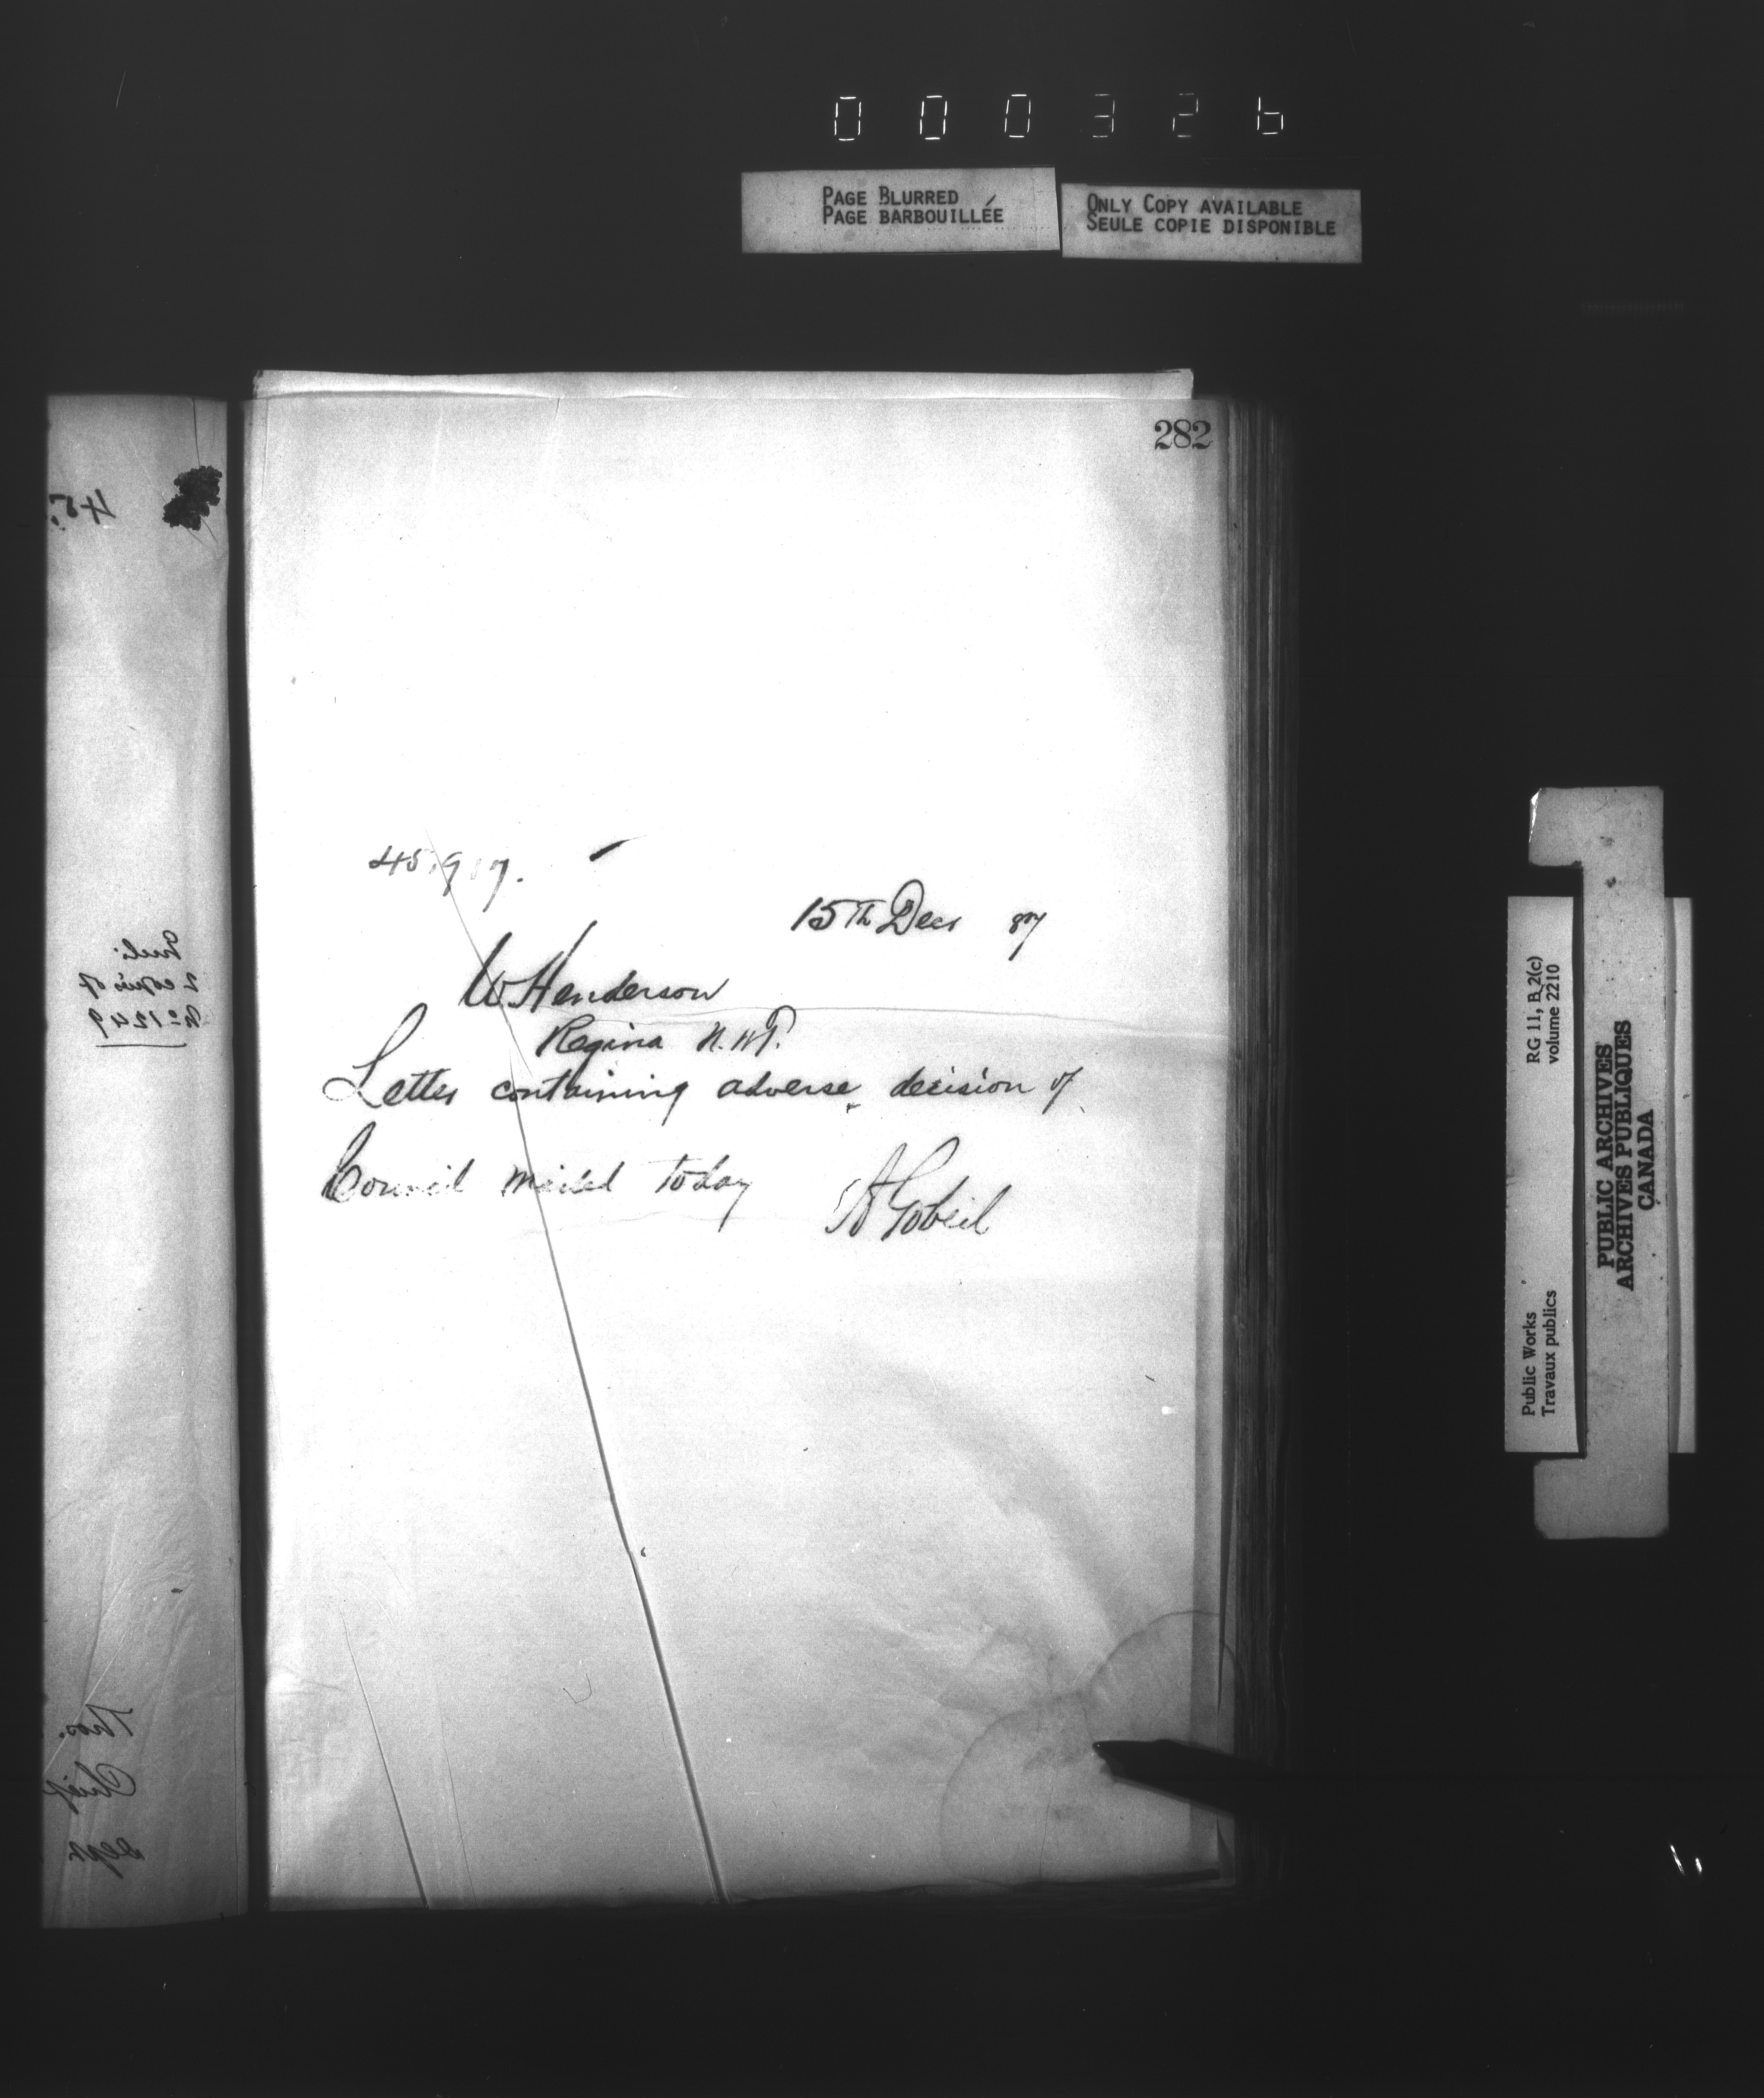 000326
PAGE BLURRED
PAGE BARBOUILLÉE
ONLY COPY AVAILABLE
SEULE COPIE DISPONIBLE
282
45.917.
15th Decr 87
W. Henderson
Regina N.W.T.
Letter containing adverse decision of
Council mailed today
A Gobeil
45.
2 copies of
No 1249
Thos.
Chief
Dept
Public Works
Travaux publics
RG 11, B 2(c)
volume 2210
PUBLIC ARCHIVES
ARCHIVES PUBLIQUES
CANADA